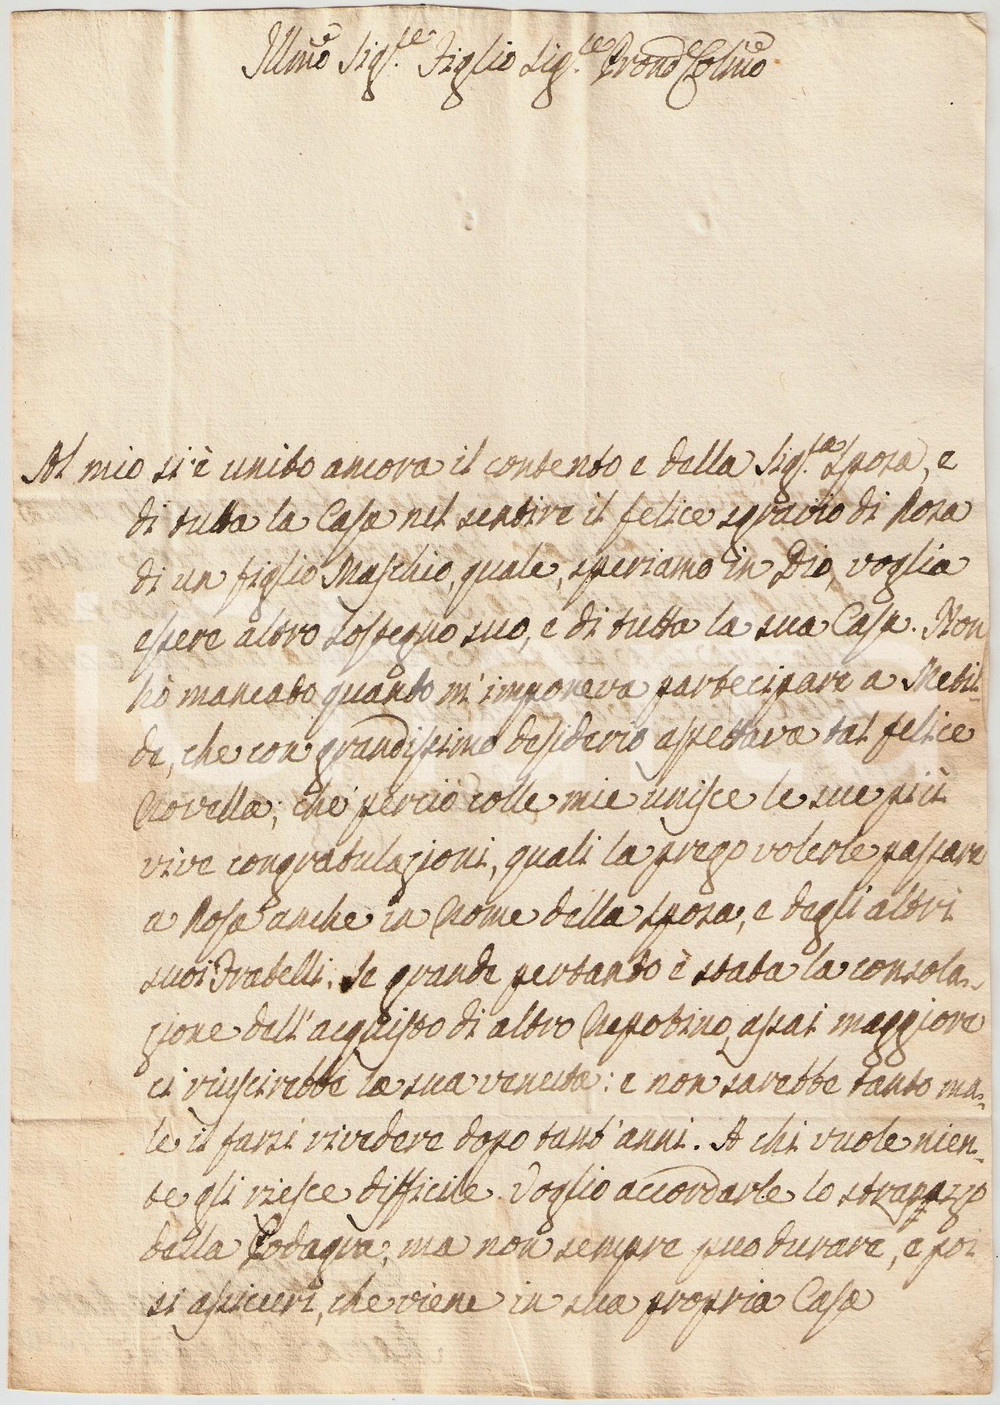 Illmo Sigre Figlio Sigre Pron Colmo
Al mio si è unito ancora il contento e della Sigra Sposa, e
di tutta la Casa nel sentire il felice sgravio di Rosa
di un figlio Maschio, quale, speriamo in Dio, voglia
essere altro sostegno suo, e di tutta la sua Casa. Non
hò mancato quanto m'imponeva partecipare a Metil-
de, che con grandissimo desiderio aspettava tal felice
Novella; che perciò colle mie unisce le sue più
vive congratulazioni, quali la prego volerle passare
a Rosa anche in Nome della sposa, e degli altri
suoi Fratelli. Se grande pertanto è stata la consola-
zione dell'acquisto di altro Nepotino, assai maggiore
ci riuscirebbe la sua venuta: e non sarebbe tanto ma-
le il farsi rivedere dopo tant'anni. A chi vuole nien-
te gli riesce difficile. Voglio accordarle lo strapazzo
della Podagra, ma non sempre puo durare, e poi
si assicuri, che viene in sua propria Casa